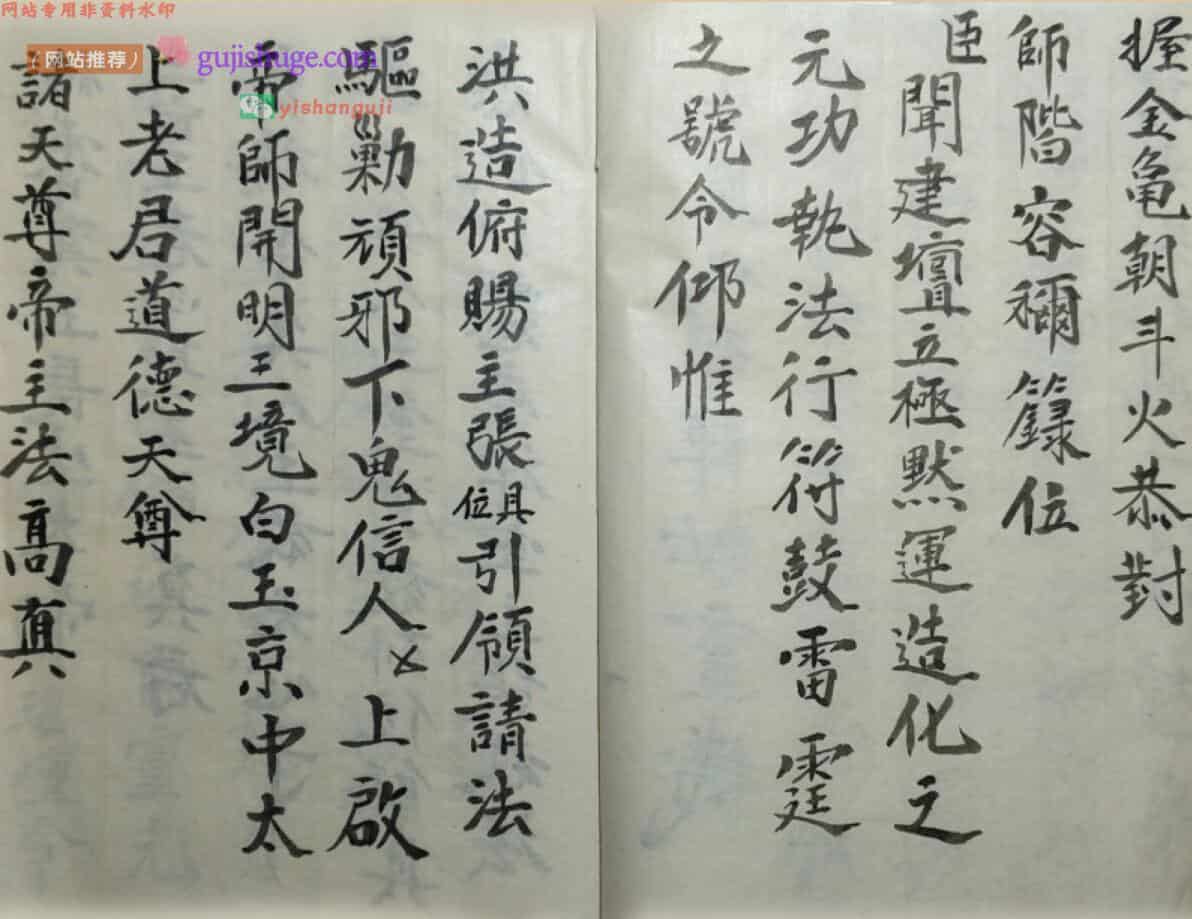 网站专用非资料水印
(网站推荐)
gujishuge.com
yishanguji
握金亀朝斗火恭對
師階容禰籙位
臣聞建壇立極默運造化之
元功執法行符鼓雷霆
之號令仰惟
洪造俯賜主張具位引領請法
驅勦頑邪下鬼信人㐅上啟
帝師開明三境白玉京中太
上老君道德天尊
諸天尊帝主法高真